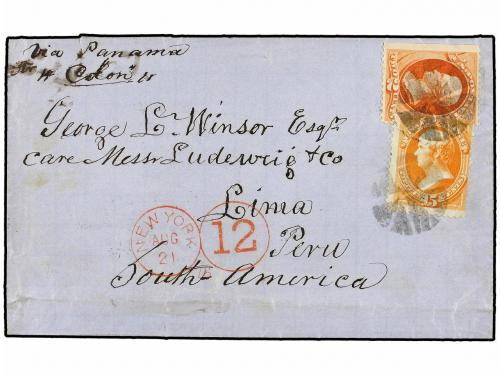 Via Panama
" Colon "
George L. Winsor Esqr
care Messr Ludewrig & co
Lima
Peru
South America
NEW YORK
AUG
21
12
15